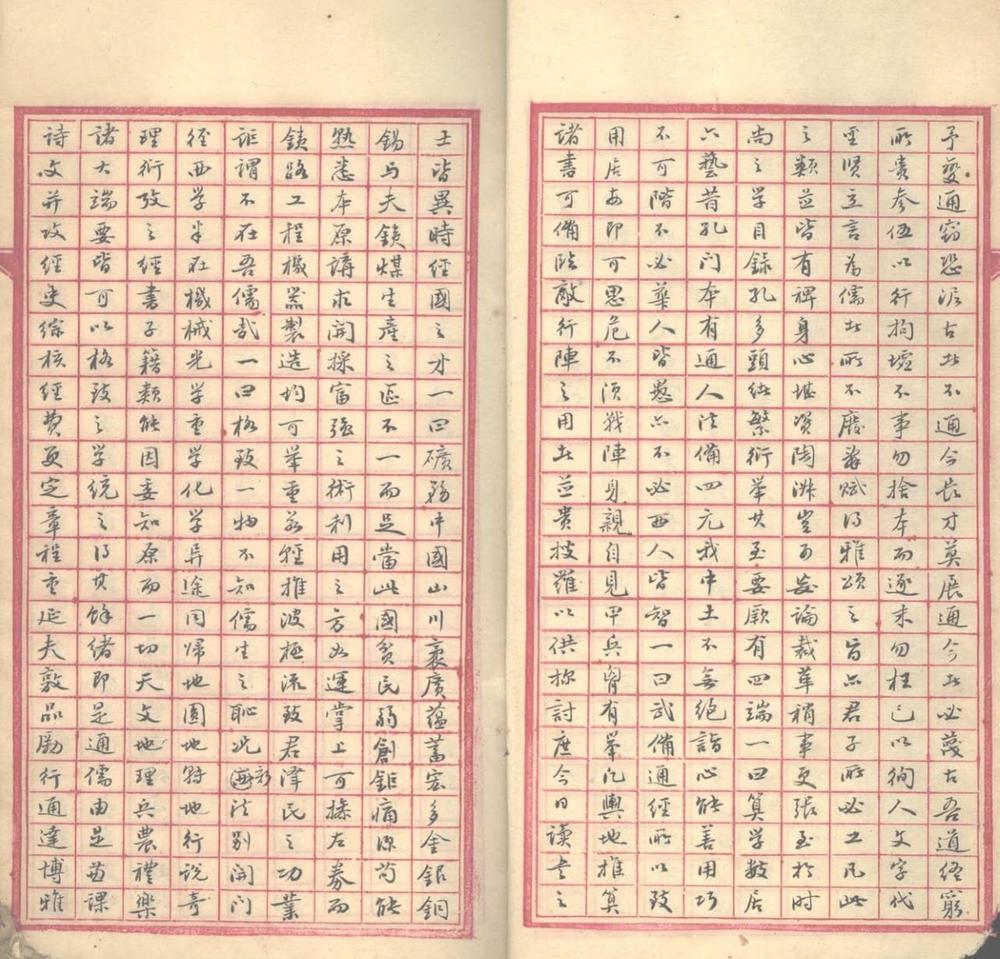 予變通窃恐泥古者不通今長才莫展通今者必蔑古吾道終窮
所貴參伍以行拘墟不事勿捨本而逐末勿枉己以徇人文字代
聖賢立言為儒者所不廢辭賦得雅頌之旨亦君子所必工凡此
之類並皆有裨身心堪資陶淑豈可妄論裁革稍事更張至於時
尚之學目錄孔多頭緒繁衍舉其至要厥有四端一曰算學數居
六藝昔孔門本有通人法備四元我中土不無絕詣心能善用巧
不可階不必華人皆愚亦不必西人皆智一曰武備通經所以致
用居安即可思危不須戰陣身親自見甲兵胷有舉凡輿地推算
諸書可備臨敵行陣之用者並貴搜羅以供探討庶今日讀書之
士皆異時經國之才一曰礦務中國山川袤廣蘊蓄宏多金銀銅
錫与夫鐵煤生產之區不一而足當此國貧民弱創鉅痛深苟能
熟悉本原講求開採富强之術利用之方如運掌上可操左券而
鐵路工程機器製造均可舉重若輕推波極流致君澤民之功業
詎謂不在吾儒哉一曰格致一物不知儒生之恥況海新法別開門
徑西学半在機械光学重学化学异途同歸地圓地轉地行説奇
理衍攷之經書子籍類能因委知原而一切天文地理兵農禮樂
諸大端要皆可以格致之学統之得其餘緒即是通儒由是苗課
詩文并攷經史綜核經費更定章程重延夫敦品勵行通達博雅